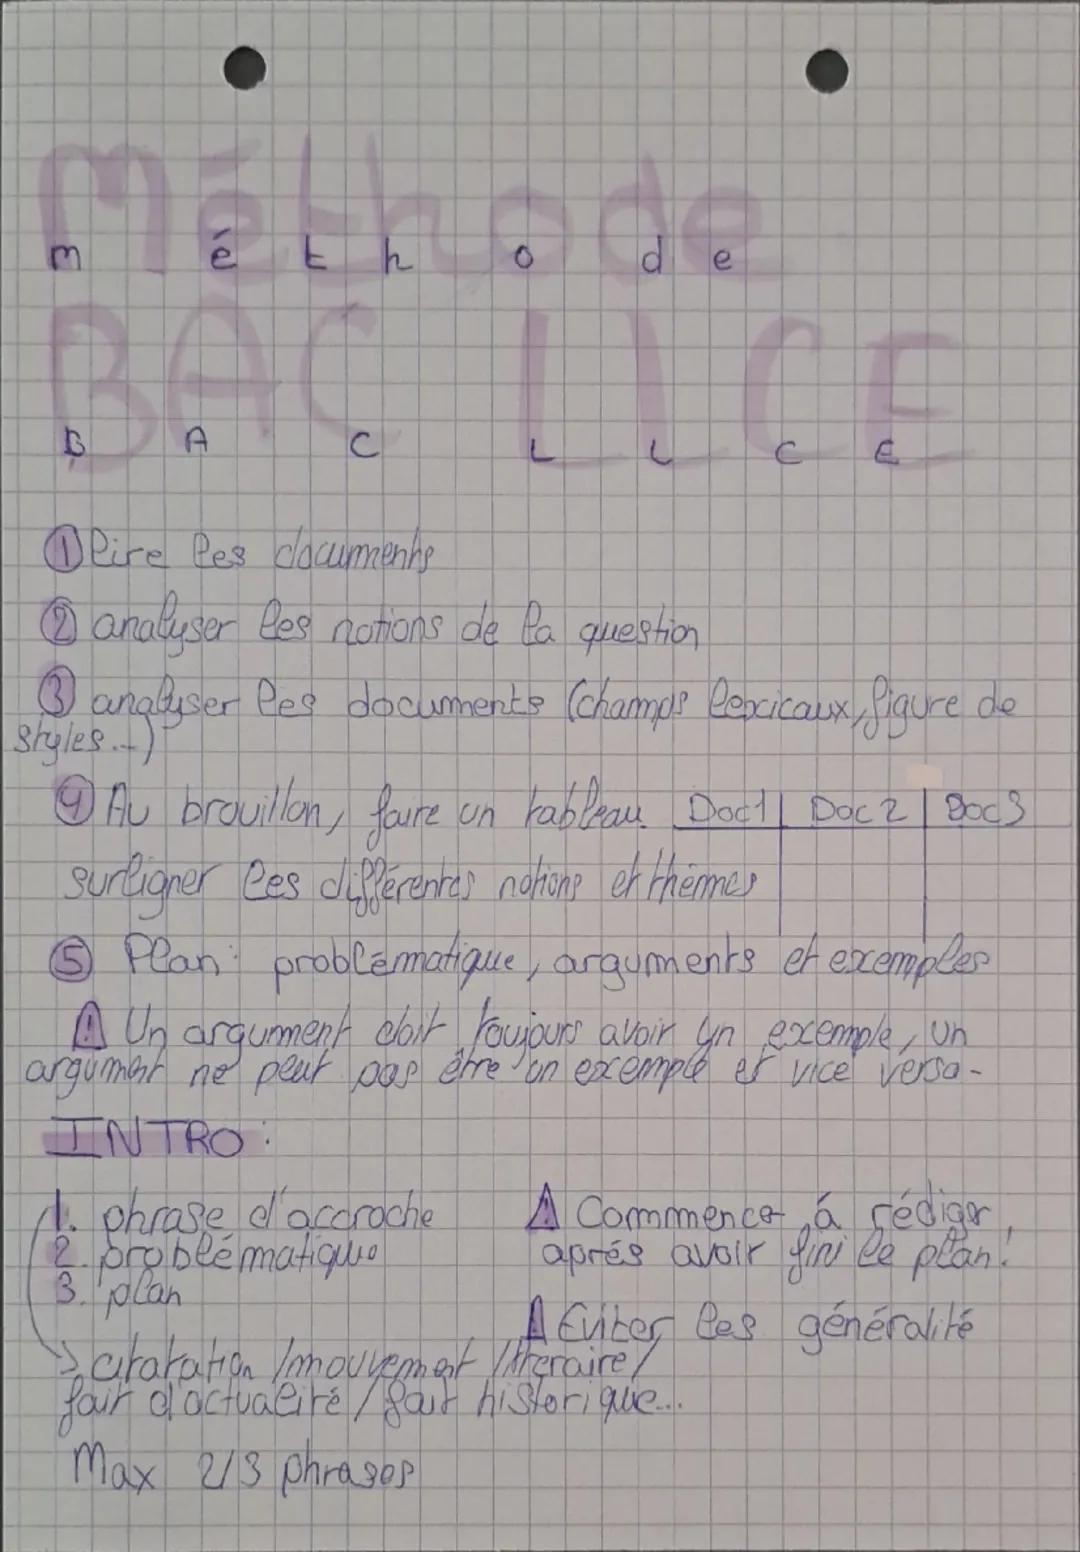 Méthode
m é t h o d e
BAC LLCE
B A C L L C E
① lire les documents
② analyser les notions de la question
③ analyser les documents (champs lexicaux, figure de
styles...)
④ Au brouillon, faire un tableau. Doc1 | Doc2 | Doc3
surligner les différentes notions et thèmes
⑤ Plan : problématique, arguments et exemples
⚠ Un argument doit toujours avoir un exemple, un
argument ne peut pas être un exemple et vice versa.
INTRO :
1. phrase d'accroche
2. problématique
3. plan
⚠ Commencer à rédiger
après avoir fini le plan!
⚠ Eviter les généralité
→ citatation /mouvement litteraire/
fait d'actualité / fait historique...
Max 2/3 phrases